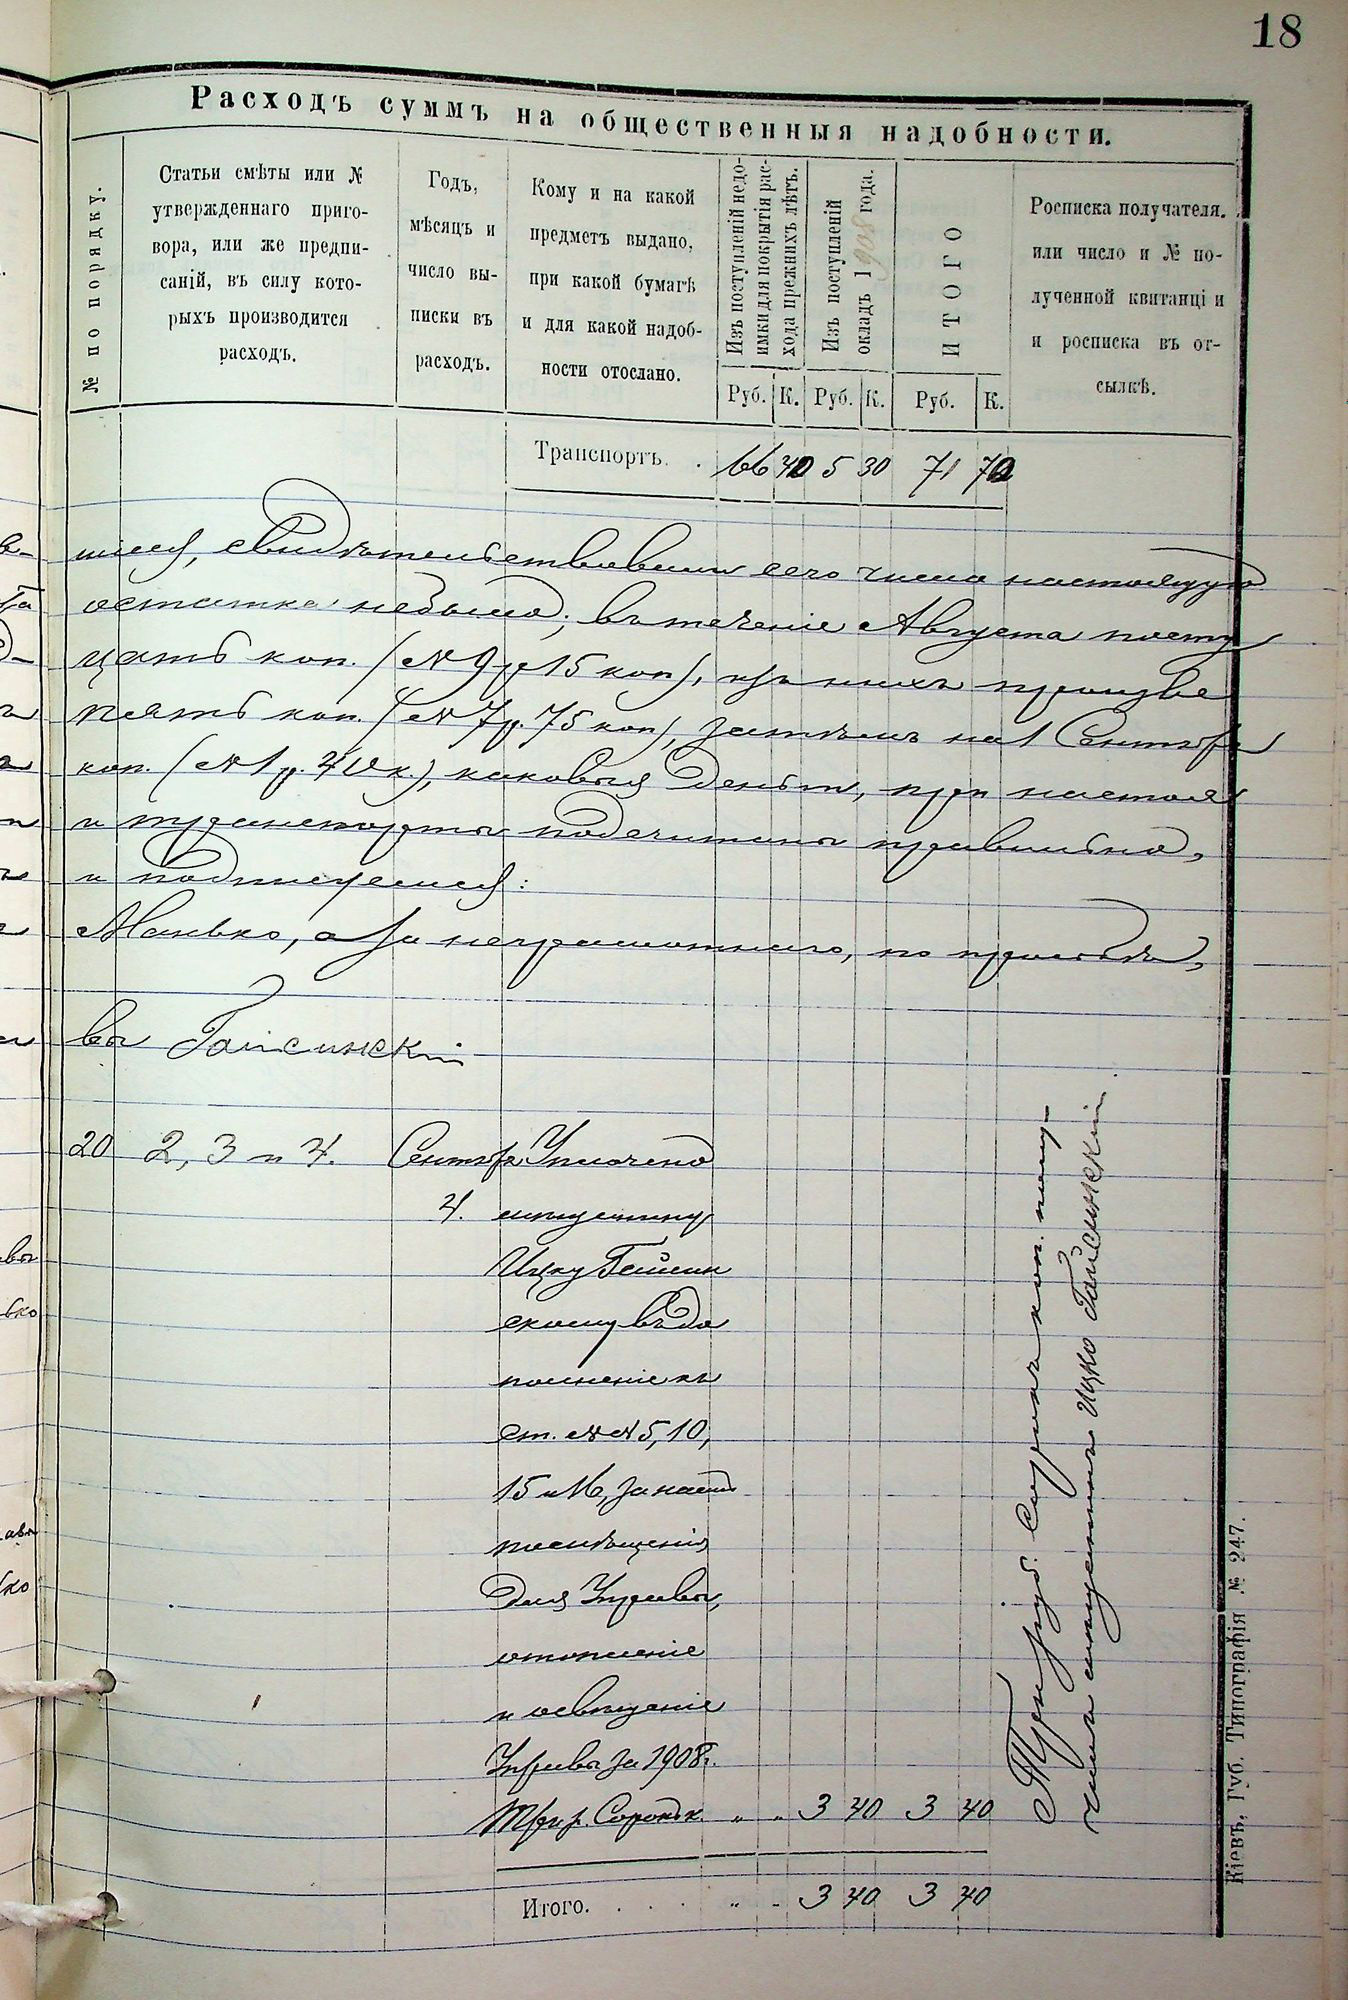 18
Расходъ суммъ на общественныя надобности.
№ по порядку.
Статьи смѣты или №
утвержденнаго приго-
вора, или же предпи-
саній, въ силу кото-
рыхъ производится
расходъ.
Годъ,
мѣсяцъ и
число вы-
писки въ
расходъ.
Кому и на какой
предметъ выдано,
при какой бумагѣ
и для какой надоб-
ности отослано.
Изъ поступленій недо-
имки для покрытія рас-
хода прежнихъ лѣтъ.
Изъ поступленій
окладъ 1908 года.
ИТОГО
Росписка получателя.
или число и № по-
лученной квитанці и
и росписка въ от-
сылкѣ.
Руб. К. Руб. К. Руб. К.
Транспортъ. . 66 40 5 30 71 70
шіися, свидѣтельствовали сего числа настоящую
остатка небыло; въ теченіе Августа посту
цать коп. (№ 9 р 15 коп), изъ нихъ произве
пять коп. (№ 7 р. 75 коп), затѣмъ на 1 Сентября
коп. (№ 1 р. 40 к.), каковыя деньги, при настоя
и транспорты подсчитаны правильно,
и подпишемся:
Манько, а за неграмотнаго, по просьбѣ,
вы Гайсинскій
20 2, 3 и 4. Сентбр. Уплочено
4.
Ицку Гайсин
скому въ до
полненіе къ
ст. №№ 5, 10,
15 и 16, за наемъ
помѣщенія
для Управы,
отопленіе
и освѣщеніе
Управы за 1908 г.
Три р. Сорок к. „ „ 3 40 3 40
Итого. . . . „ „ 3 40 3 40
Три руб. Сорокъ коп. полу-
чилъ Ицко Гайсинскій
Кіевъ, Губ. Типографія № 247.